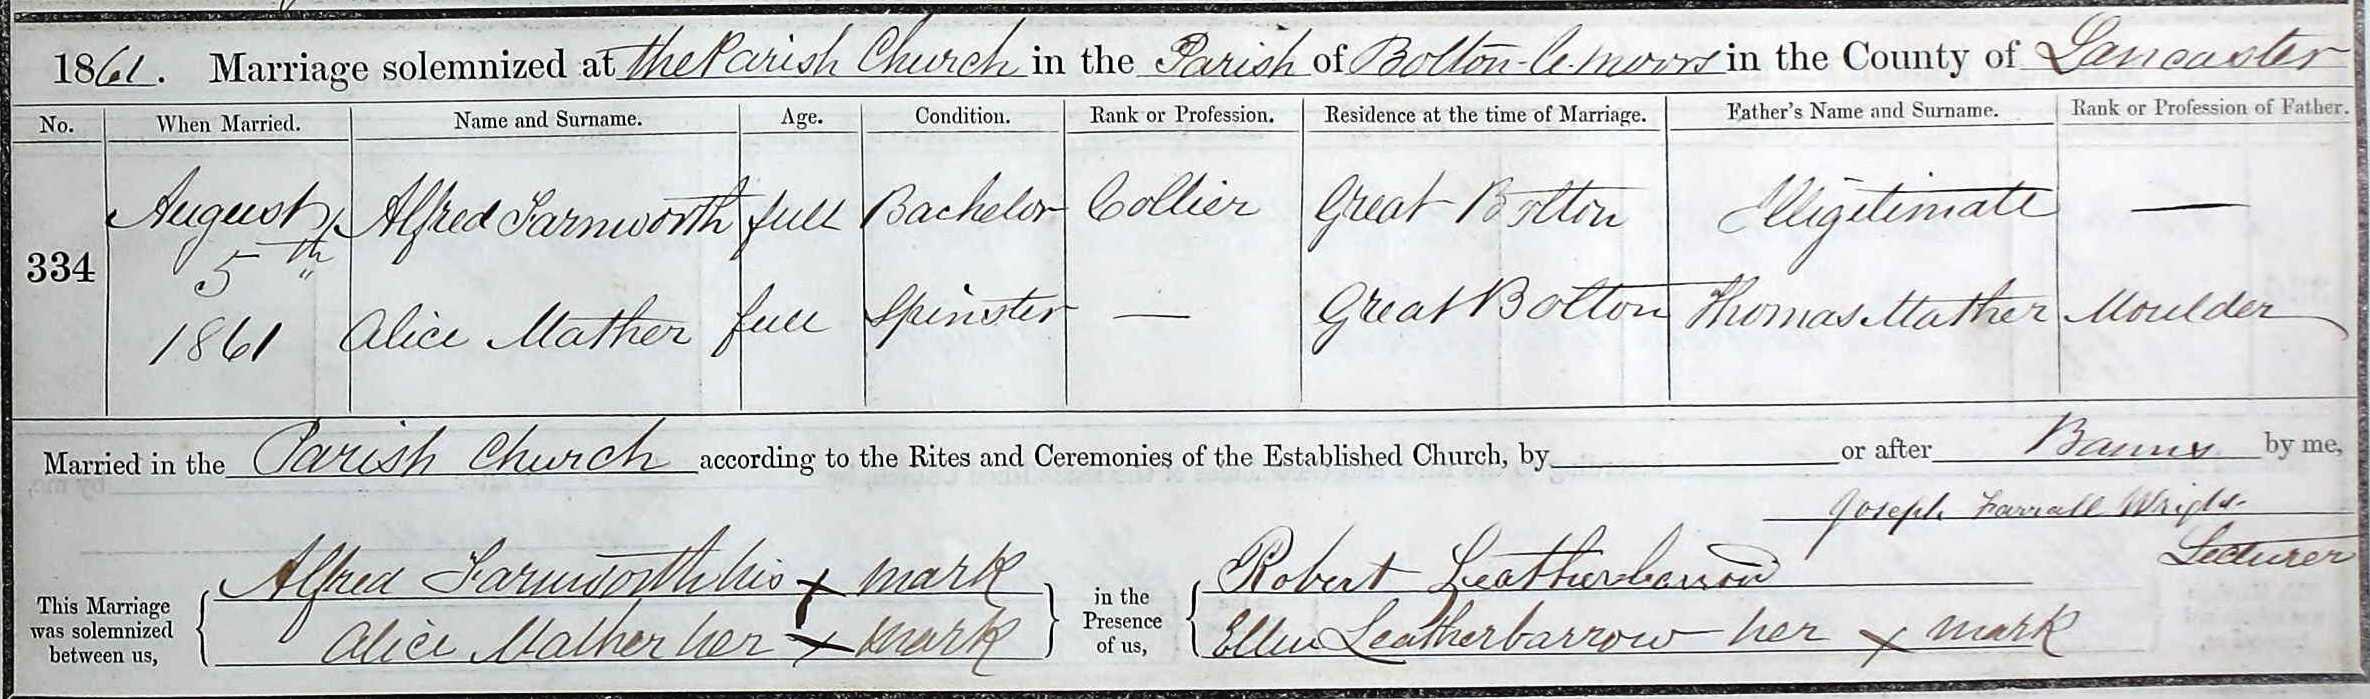 1861. Marriage solemnized at the Parish Church in the Parish of Bolton-le-Moors in the County of Lancaster
No. When Married. Name and Surname. Age. Condition. Rank or Profession. Residence at the time of Marriage. Father's Name and Surname. Rank or Profession of Father.
334 August 5th 1861 Alfred Farnworth full Bachelor Collier Great Bolton Illigitimate —
Alice Mather full Spinster — Great Bolton Thomas Mather Moulder
Married in the Parish Church according to the Rites and Ceremonies of the Established Church, by or after Banns by me,
Joseph Farrall Wright
Lecturer
This Marriage was solemnized between us, Alfred Farnworth his x mark in the Presence of us, Robert Leatherbarrow
Alice Mather her x mark Ellen Leatherbarrow her x mark